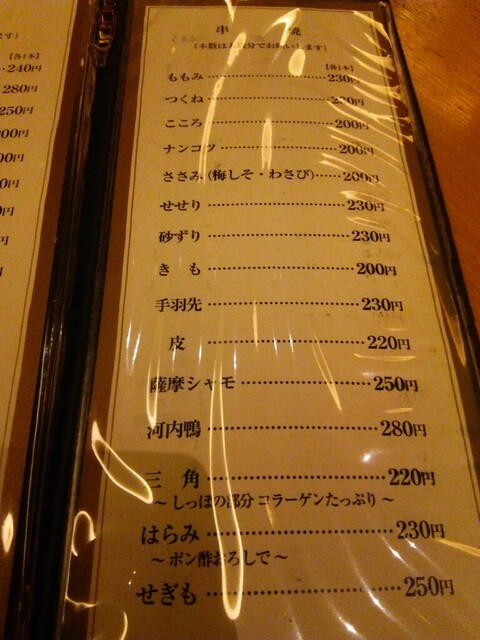 ます)
【各1本】
240円
280円
250円
200円
00円
0円
円
円
円
串 焼
(本数は人数分でお願いします)
【各1本】
ももみ 230円
つくね 230円
こころ 200円
ナンコツ 200円
ささみ(梅しそ・わさび) 200円
せせり 230円
砂ずり 230円
きも 200円
手羽先 230円
皮 220円
薩摩シャモ 250円
河内鴨 280円
三角 220円
～しっぽの部分コラーゲンたっぷり～
はらみ 230円
～ポン酢おろしで～
せぎも 250円